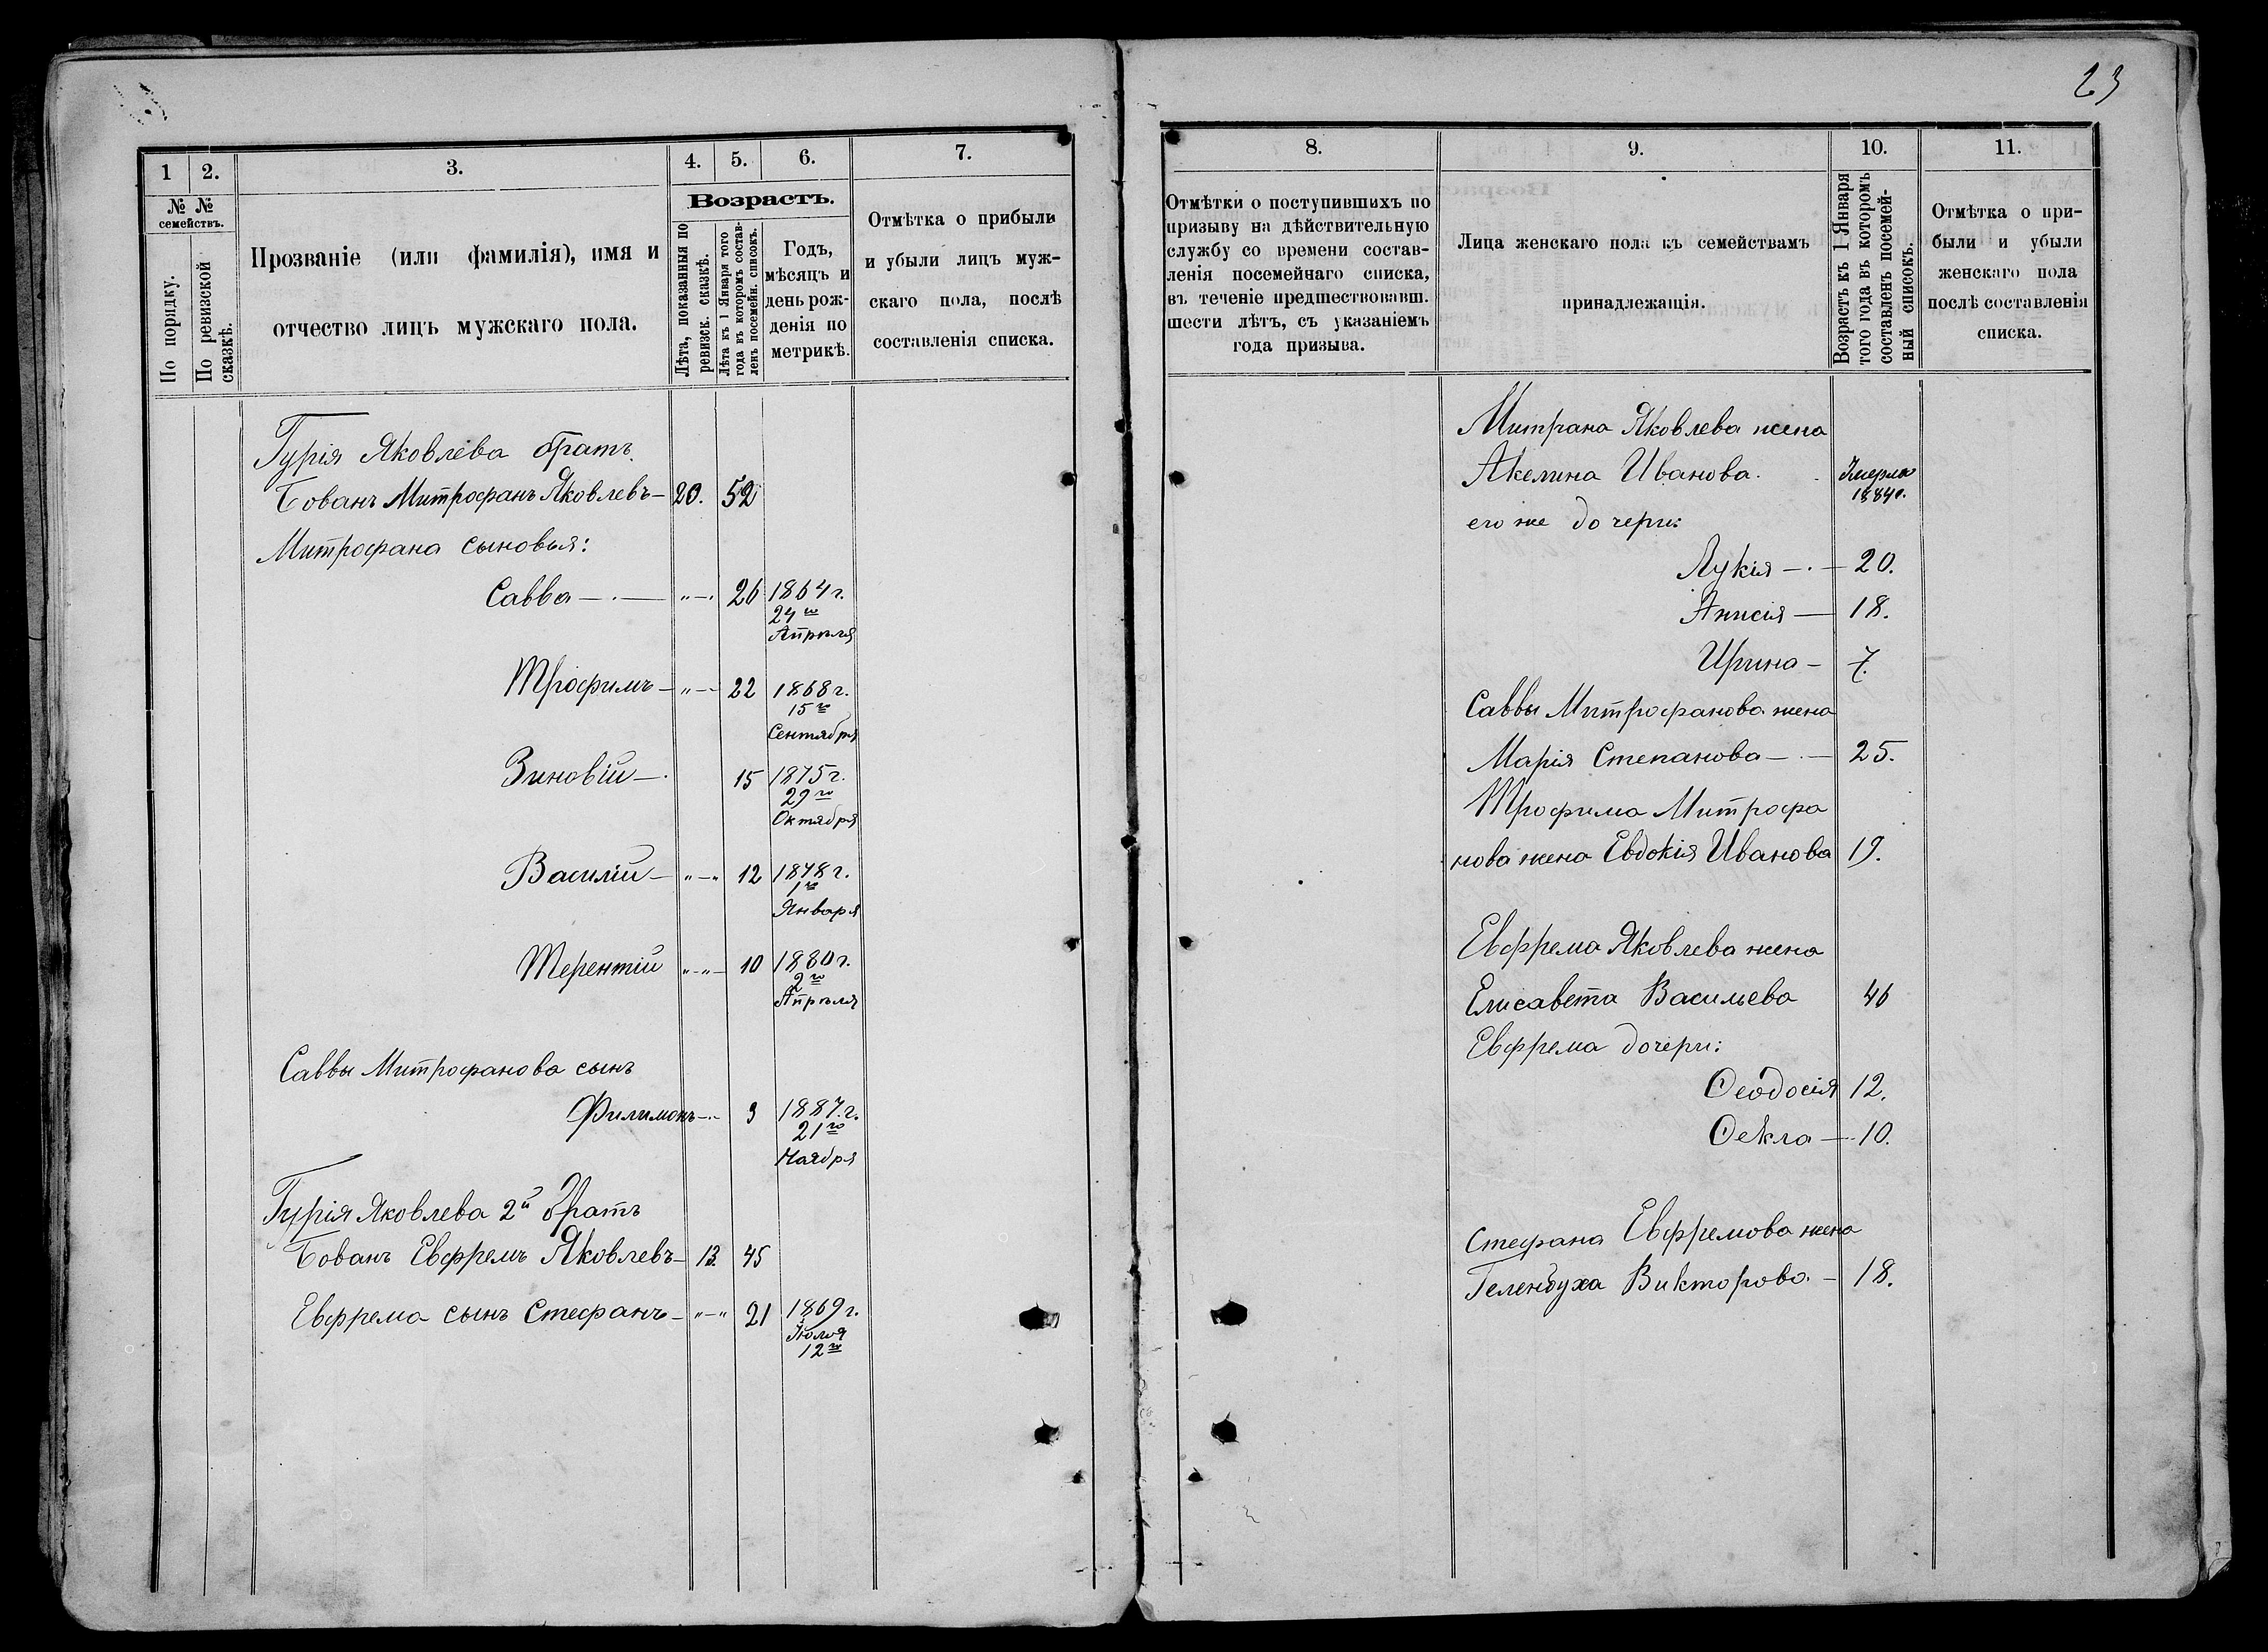 23
1
2.
3.
4.
5.
6.
7.
№ №
семействъ.
По порядку.
По ревизской
сказкѣ.
Прозваніе (или фамилія), имя и
отчество лицъ мужскаго пола.
Возрастъ.
Лѣта, показанныя по
ревизск. сказкѣ.
Лѣта къ 1 Января того
года въ которомъ состав-
ленъ посемейн. списокъ.
Годъ,
мѣсяцъ и
день рож-
денія по
метрикѣ.
Отмѣтка о прибыли
и убыли лицъ муж-
скаго пола, послѣ
составленія списка.
Гурія Яковлева братъ
Бованъ Митрофанъ Яковлевъ — 20. 52
Митрофана сыновья:
Савва — . — „ — . 26 1864 г.
24го
Апрѣля
Трофимъ — „ — 22 1868 г.
15го
Сентября
Зиновій — . 15 1875 г.
29го
Октября
Василій — „ — „ 12 1878 г.
1го
Января
Терентій „ — „ — 10 1880 г.
2го
Апрѣля
Саввы Митрофанова сынъ
Филимонъ — . — 3 1887 г.
21го
Ноября
Гурія Яковлева 2й братъ
Бованъ Евфремъ Яковлевъ — 13. 45
Евфрема сынъ Стефанъ — „ — „ 21 1869 г.
Іюля
12го
8.
9.
10.
11.
Отмѣтки о поступившихъ по
призыву на дѣйствительную
службу со времени состав-
ленія посемейнаго списка,
въ теченіе предшествовавш.
шести лѣтъ, съ указаніемъ
года призыва.
Лица женскаго пола къ семействамъ
принадлежащія.
Возрастъ къ 1 Января
того года въ которомъ
составленъ посемей-
ный списокъ.
Отмѣтка о при-
были и убыли
женскаго пола
послѣ составленія
списка.
Митрана Яковлева жена
Акелина Иванова. Умерла
1884 г.
его же дочери:
Лукія — . — 20.
Анисія — 18.
Ирина — 7.
Саввы Митрофанова жена
Марія Степанова — . — 25.
Трофима Митрофа
нова жена Евдокія Иванова 19.
Евфрема Яковлева жена
Елисавета Васильева 46
Евфрема дочери:
Ѳеодосія 12.
Ѳекла — 10.
Стефана Евфремова жена
Викторова — 18.